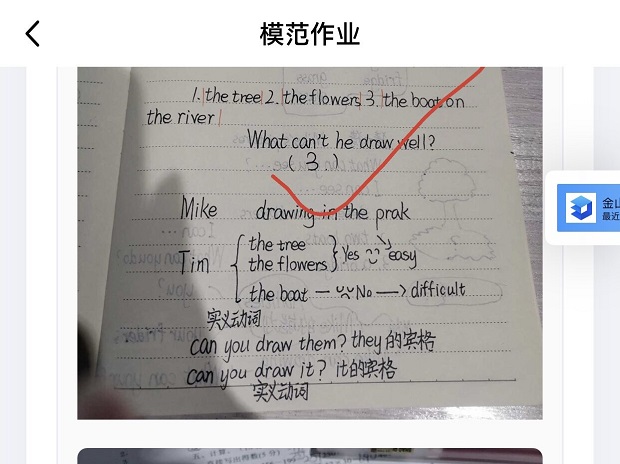 模范作业
1. the tree 2. the flowers 3. the boat on
the river
What can't he draw well?
( 3 )
Mike drawing in the prak
Tim
the tree
the flowers
Yes easy
the boat — No → difficult
实义动词
can you draw them? they的宾格
can you draw it? it的宾格
实义动词
金山
最近